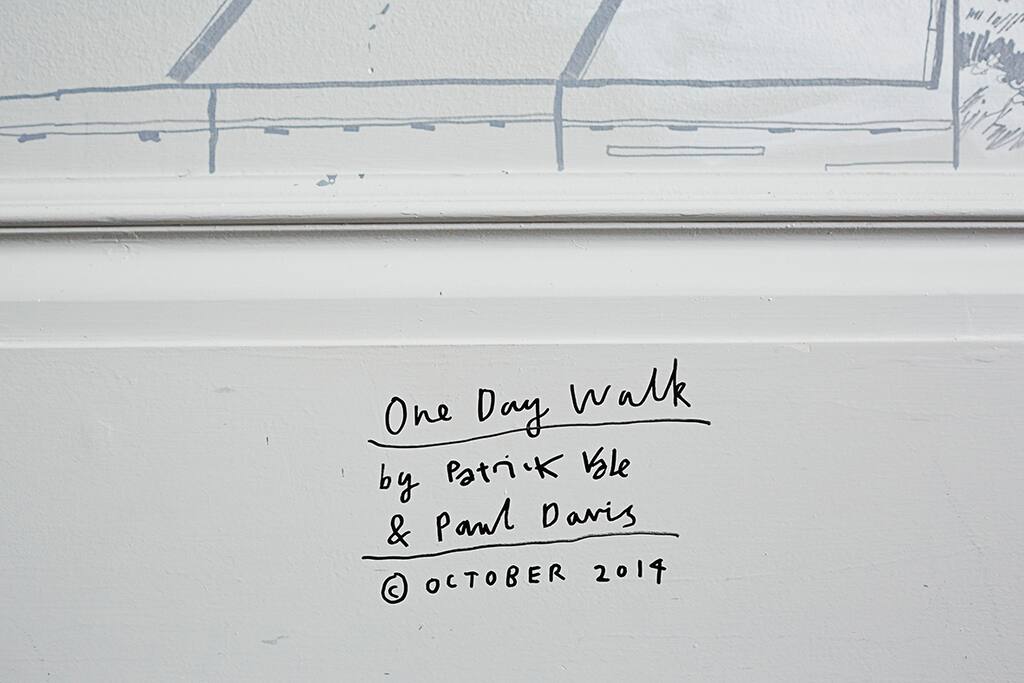 One Day Walk
by Patrick Vale
& Paul Davis
© OCTOBER 2014